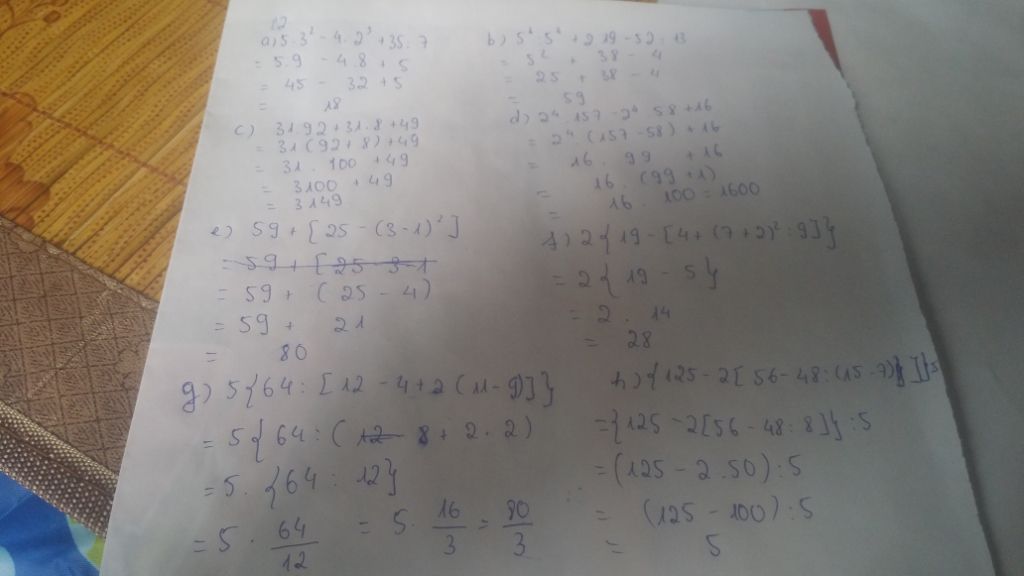 12
a) 5.3² - 4.2³ + 35:7
= 5.9 - 4.8 + 5
= 45 - 32 + 5
= 18
b) 5⁴:5² + 2.19 - 52:13
= 5² + 38 - 4
= 25 + 38 - 4
= 59
c) 31.92 + 31.8 + 49
= 31(92 + 8) + 49
= 31.100 + 49
= 3100 + 49
= 3149
d) 2⁴.157 - 2⁴.58 + 16
= 2⁴.(157 - 58) + 16
= 16.99 + 16
= 16.(99 + 1)
= 16.100 = 1600
e) 59 + [25 - (3 - 1)²]
= 59 + [25 - 3 - 1
= 59 + (25 - 4)
= 59 + 21
= 80
f) 2{19 - [4 + (7 + 2)²:9]}
= 2{19 - 5}
= 2.14
= 28
g) 5{64:[12 - 4 + 2(11 - 9)]}
= 5{64:(12 - 8 + 2.2)
= 5.{64:12}
= 5.64/12 = 5.16/3 = 80/3
h) {125 - 2[56 - 48:(15 - 7)]}:5
= {125 - 2[56 - 48:8]}:5
= (125 - 2.50):5
= (125 - 100):5
= 5